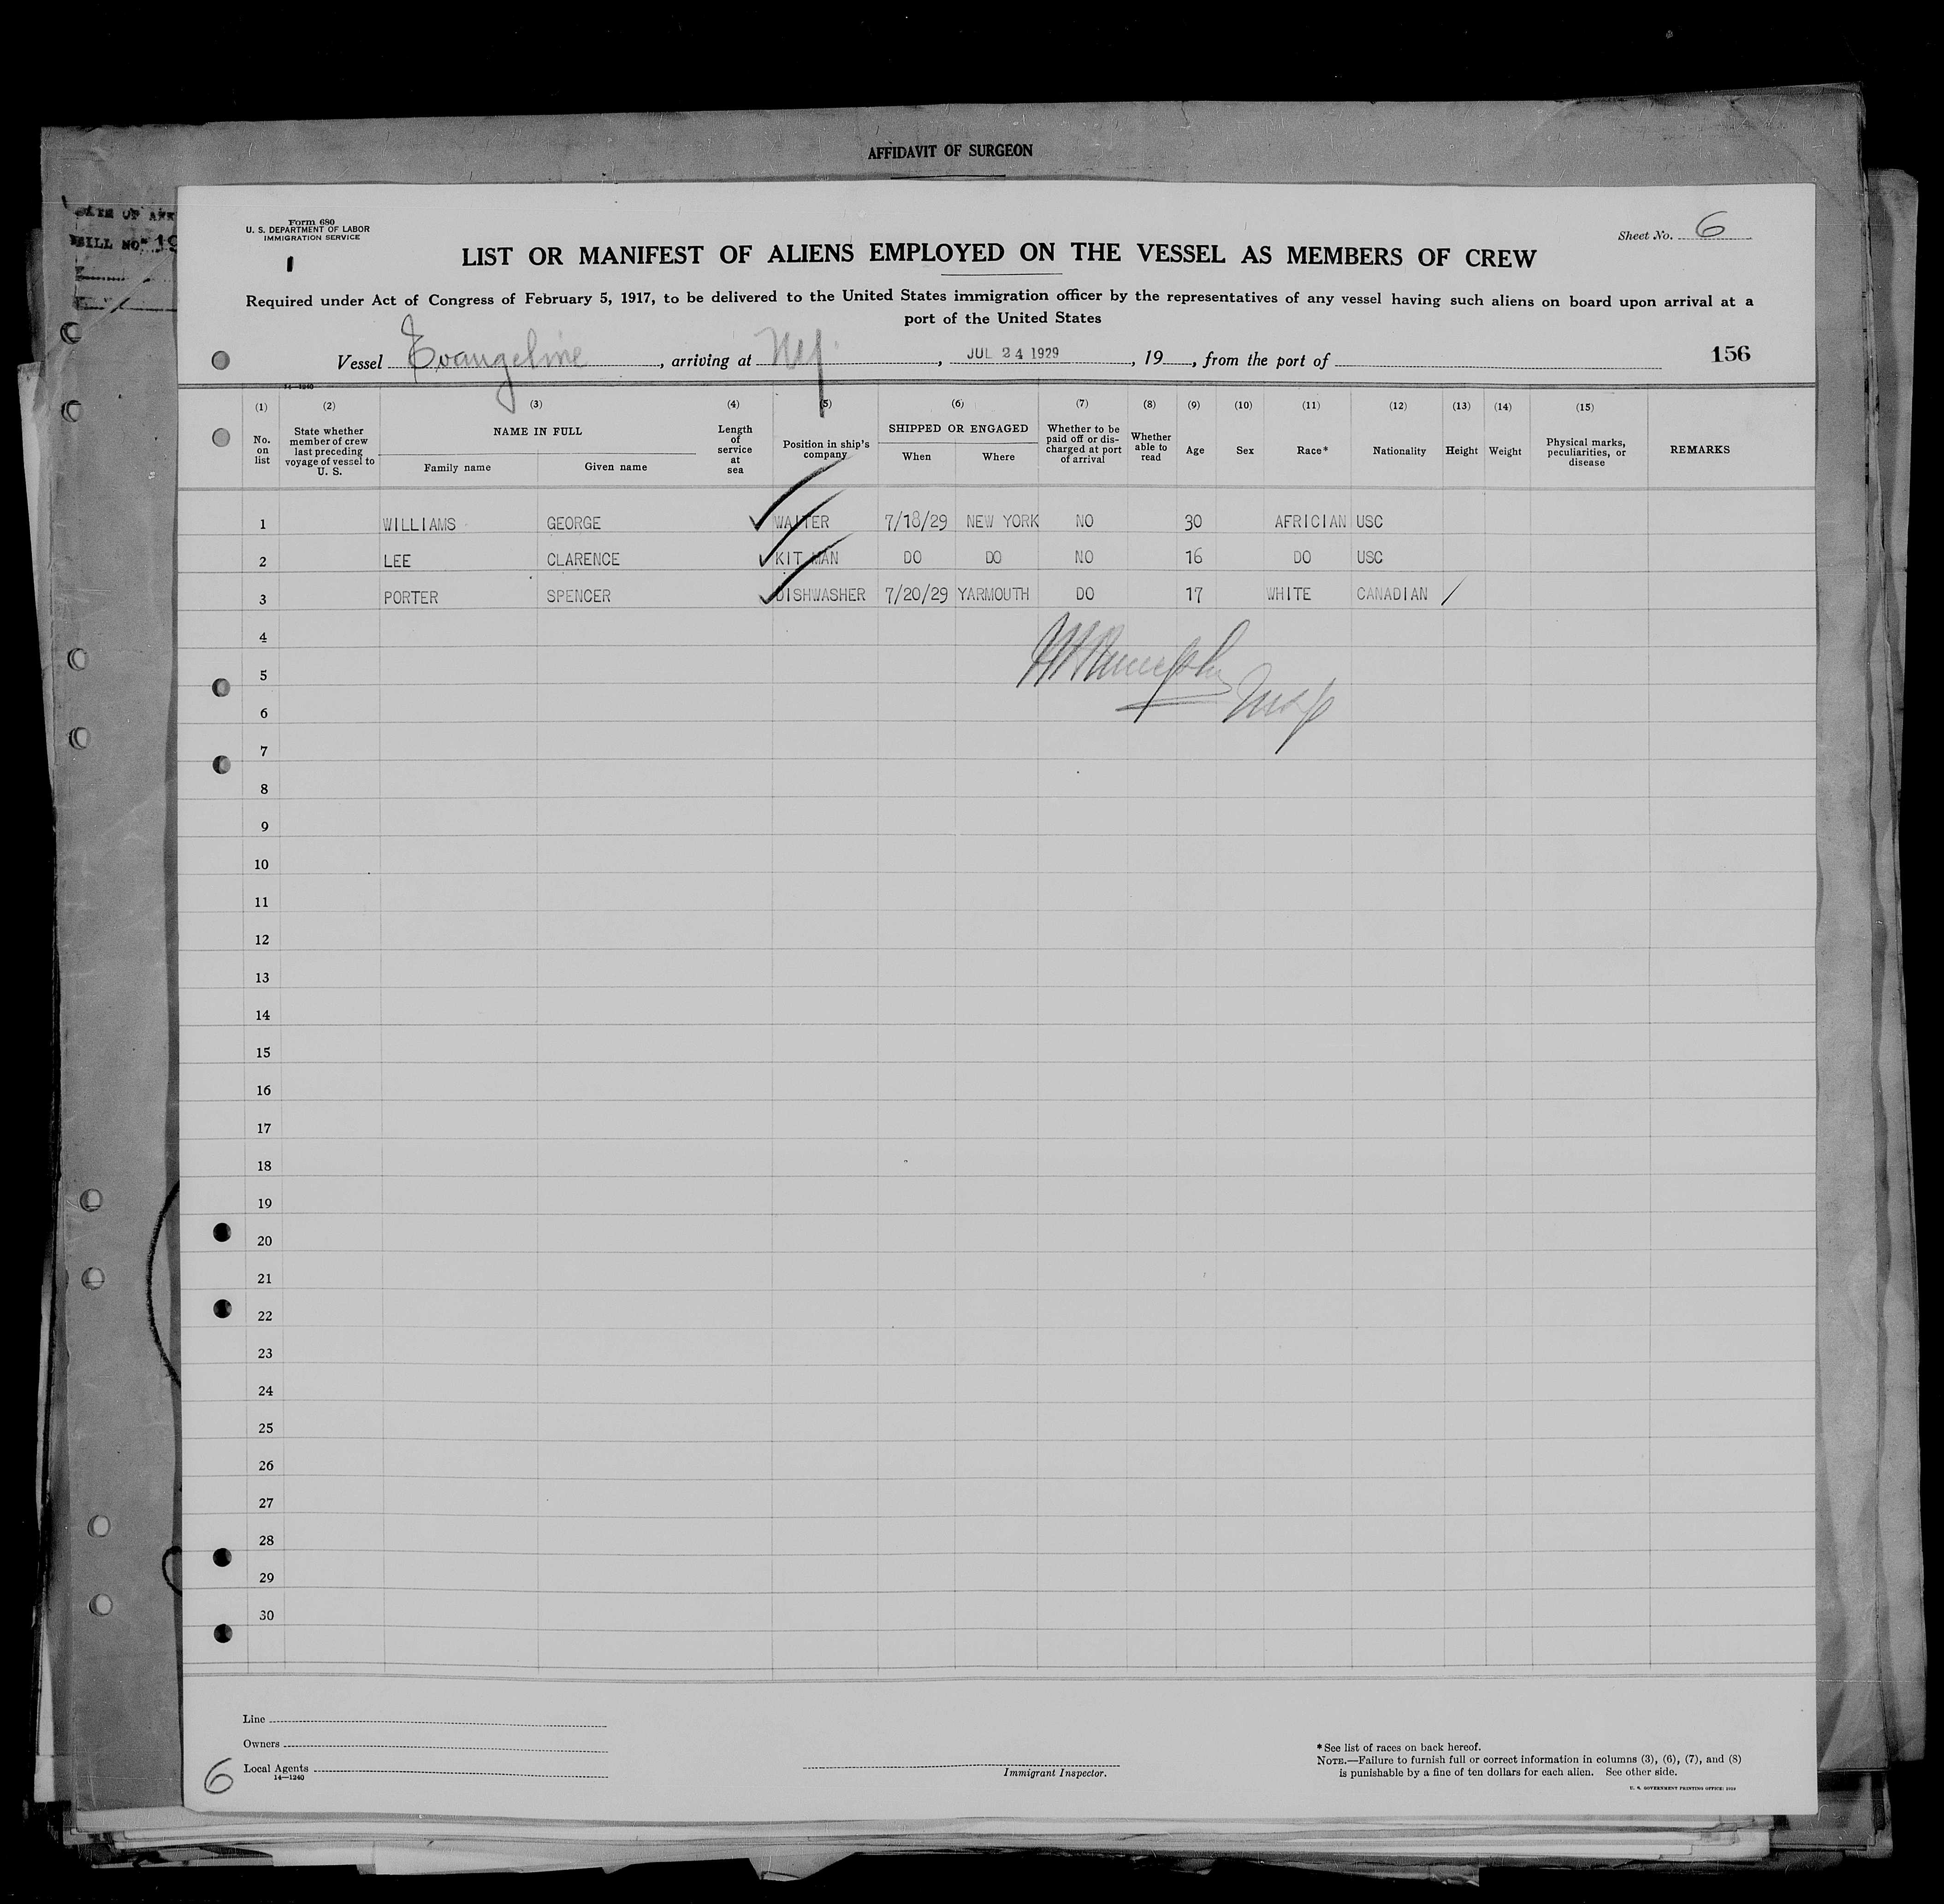 AFFIDAVIT OF SURGEON
BILL NO. 19
Form 680
U. S. DEPARTMENT OF LABOR
IMMIGRATION SERVICE
Sheet No. 6
LIST OR MANIFEST OF ALIENS EMPLOYED ON THE VESSEL AS MEMBERS OF CREW
Required under Act of Congress of February 5, 1917, to be delivered to the United States immigration officer by the representatives of any vessel having such aliens on board upon arrival at a
port of the United States
Vessel Evangeline, arriving at NY, JUL 24 1929, 19, from the port of
156
14—1240
(1) (2) (3) (4) (5) (6) (7) (8) (9) (10) (11) (12) (13) (14) (15)
No. on list
State whether member of crew last preceding voyage of vessel to U. S.
NAME IN FULL
Family name
Given name
Length of service at sea
Position in ship's company
SHIPPED OR ENGAGED
When
Where
Whether to be paid off or discharged at port of arrival
Whether able to read
Age
Sex
Race*
Nationality
Height
Weight
Physical marks, peculiarities, or disease
REMARKS
1 WILLIAMS GEORGE WAITER 7/18/29 NEW YORK NO 30 AFRICIAN USC
2 LEE CLARENCE KIT MAN DO DO NO 16 DO USC
3 PORTER SPENCER DISHWASHER 7/20/29 YARMOUTH DO 17 WHITE CANADIAN
4
5
6
7
8
9
10
11
12
13
14
15
16
17
18
19
20
21
22
23
24
25
26
27
28
29
30
Line
Owners
Local Agents
14—1240
6
Immigrant Inspector.
*See list of races on back hereof.
NOTE.—Failure to furnish full or correct information in columns (3), (6), (7), and (8)
is punishable by a fine of ten dollars for each alien. See other side.